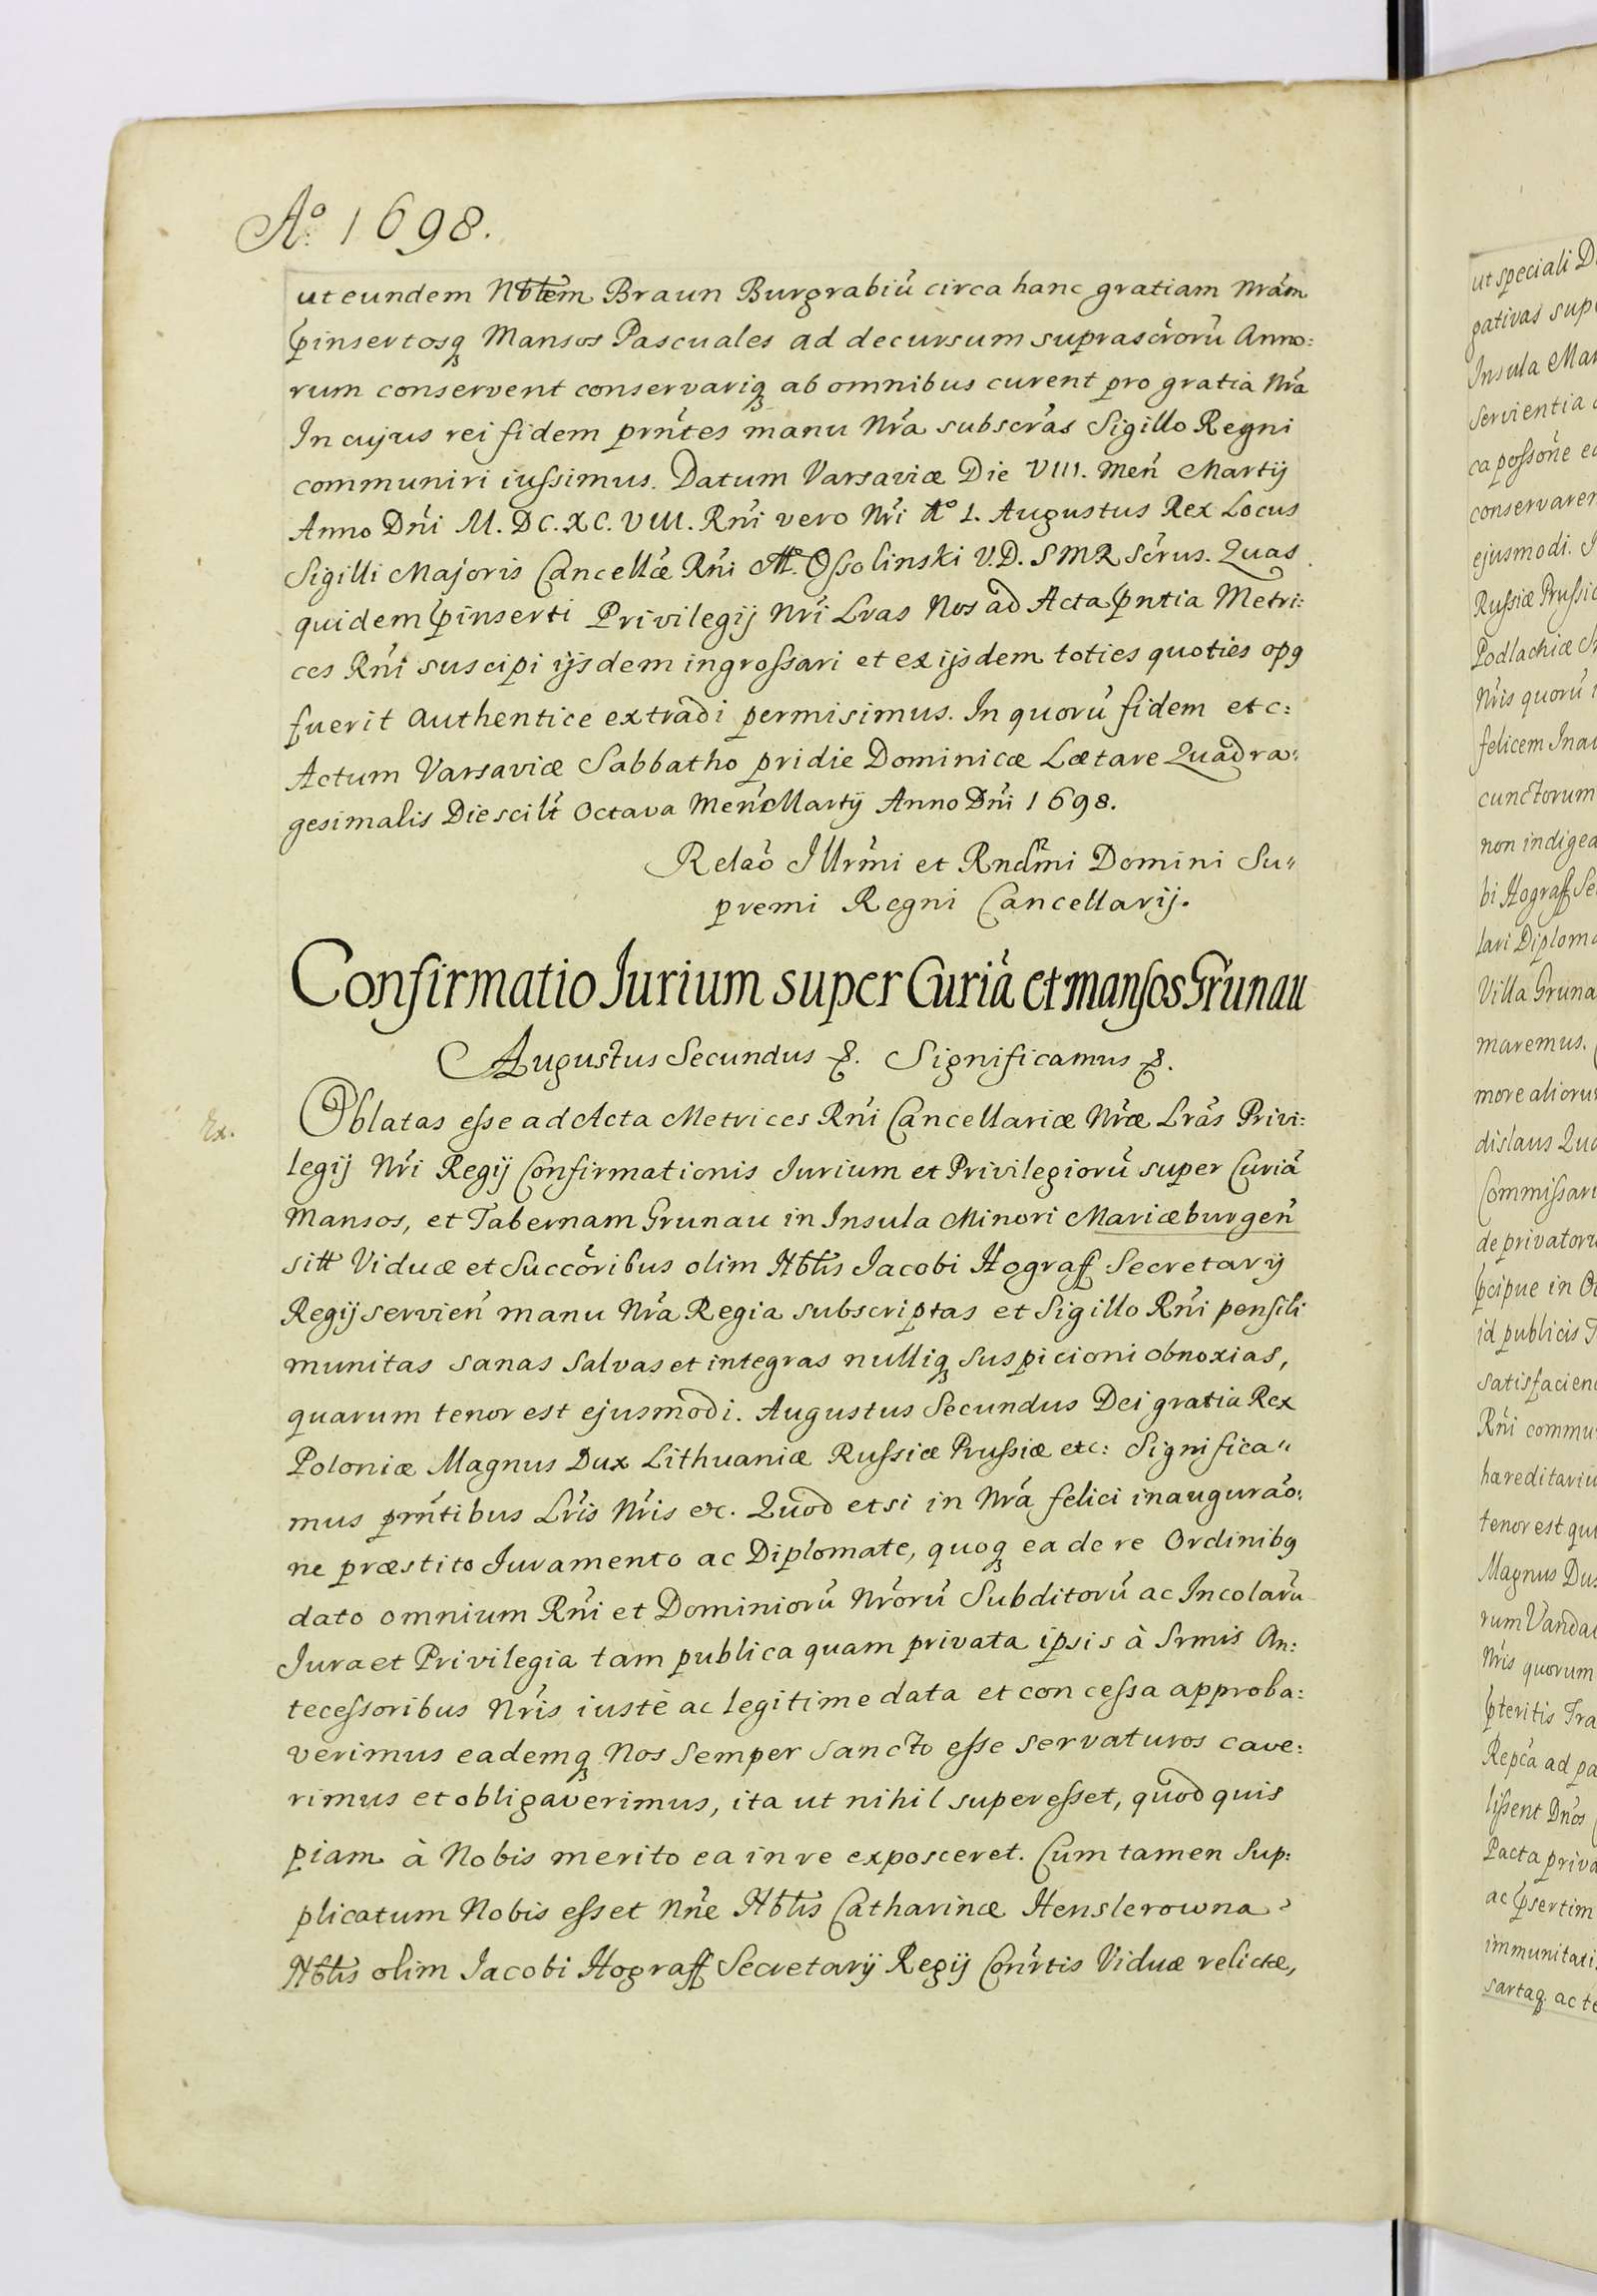 Aº 1698.
ut eundem Nblem Braun Burgrabiu circa hanc gratiam Nram
pinsertosq Mansos Pascuales ad decursum suprascroru Anno:
rum conservent conservariq ab omnibus curent pro gratia Nra
In cujus rei fidem prntes manu Nra subscras Sigillo Regni
communiri iussimus. Datum Varsaviæ Die VIII. Men Martij
Anno Dni M. DC. XC. VIII. Rni vero Nri Aº I. Augustus Rex Locus
Sigilli Majoris Cancellæ Rni Ossolinski V.D. SMR Scrus. Quas
quidem pinserti Privilegij Nri Lras Nos ad Acta pntia Metri:
ces Rni suscipi ijsdem ingrossari et ex ijsdem toties quoties opg
fuerit authentice extradi permisimus. In quoru fidem etc:
Actum Varsaviæ Sabbatho pridie Dominicæ Lætare Quadra:
gesimalis Die scilt Octava Men Martij Anno Dni 1698.
Relao Illrmi et Rndmi Domini Su"
premi Regni Cancellarij.
Confirmatio Jurium super Curiã et mansos Grunau
Augustus Secundus &. Significamus &.
Ex.
Oblatas esse ad Acta Metrices Rni Cancellariæ Nræ Lras Privi:
legij Nri Regij Confirmationis Iurium et Privilegioru super Curiã
Mansos, et Tabernam Grunau in Insula Minori Mariæburgen
sitt Viduæ et Succoribus olim Nblis Iacobi Hograff Secretarij
Regij servien manu Nra Regia subscriptas et Sigillo Rni pensili
munitas sanas salvas et integras nulliq suspicioni obnoxias,
quarum tenor est ejusmodi. Augustus Secundus Dei gratia Rex
Poloniæ Magnus Dux Lithuaniæ Russiæ Prussiæ etc: Significa"
mus prntibus Lris Nris etc. Quod etsi in Nra felici inaugurao:
ne præstito Iuramento ac Diplomate, quoq ea de re Ordinibg
dato omnium Rni et Dominioru Nroru Subditoru ac Incolaru
Iura et Privilegia tam publica quam privata ipsis à Srmis An:
tecessoribus Nris iustè ac legitime data et concessa approba:
verimus eademq Nos semper sancto esse servaturos cave:
rimus et obligaverimus, ita ut nihil superesset, quod quis
piam à Nobis merito ea in re exposceret. Cum tamen Sup:
plicatum Nobis esset Nne Nblis Catharinæ Henslerowna
Nblis olim Iacobi Hograff Secretarij Regij Conrtis Viduæ relictæ,
ut speciali
Insula
Servientia
ca possone
conservaren
ejusmodi.
Russiæ Prussiæ
Podlachiæ
Nris quoru
felicem
cunctorum
non indigea
bi Hograff
lari Diploma
Villa Gruna
maremus.
more alioru
dislaus
Commissari
de privatoru
pcipue in
id publicis
satisfacien
Rni commu
hæreditariu
tenor est
Magnus Du
rum Vandal
Nris quorum
pteritis
Repca ad
lissent Dnos
Pacta priva
ac psertim
immunitati
sartaq. ac te